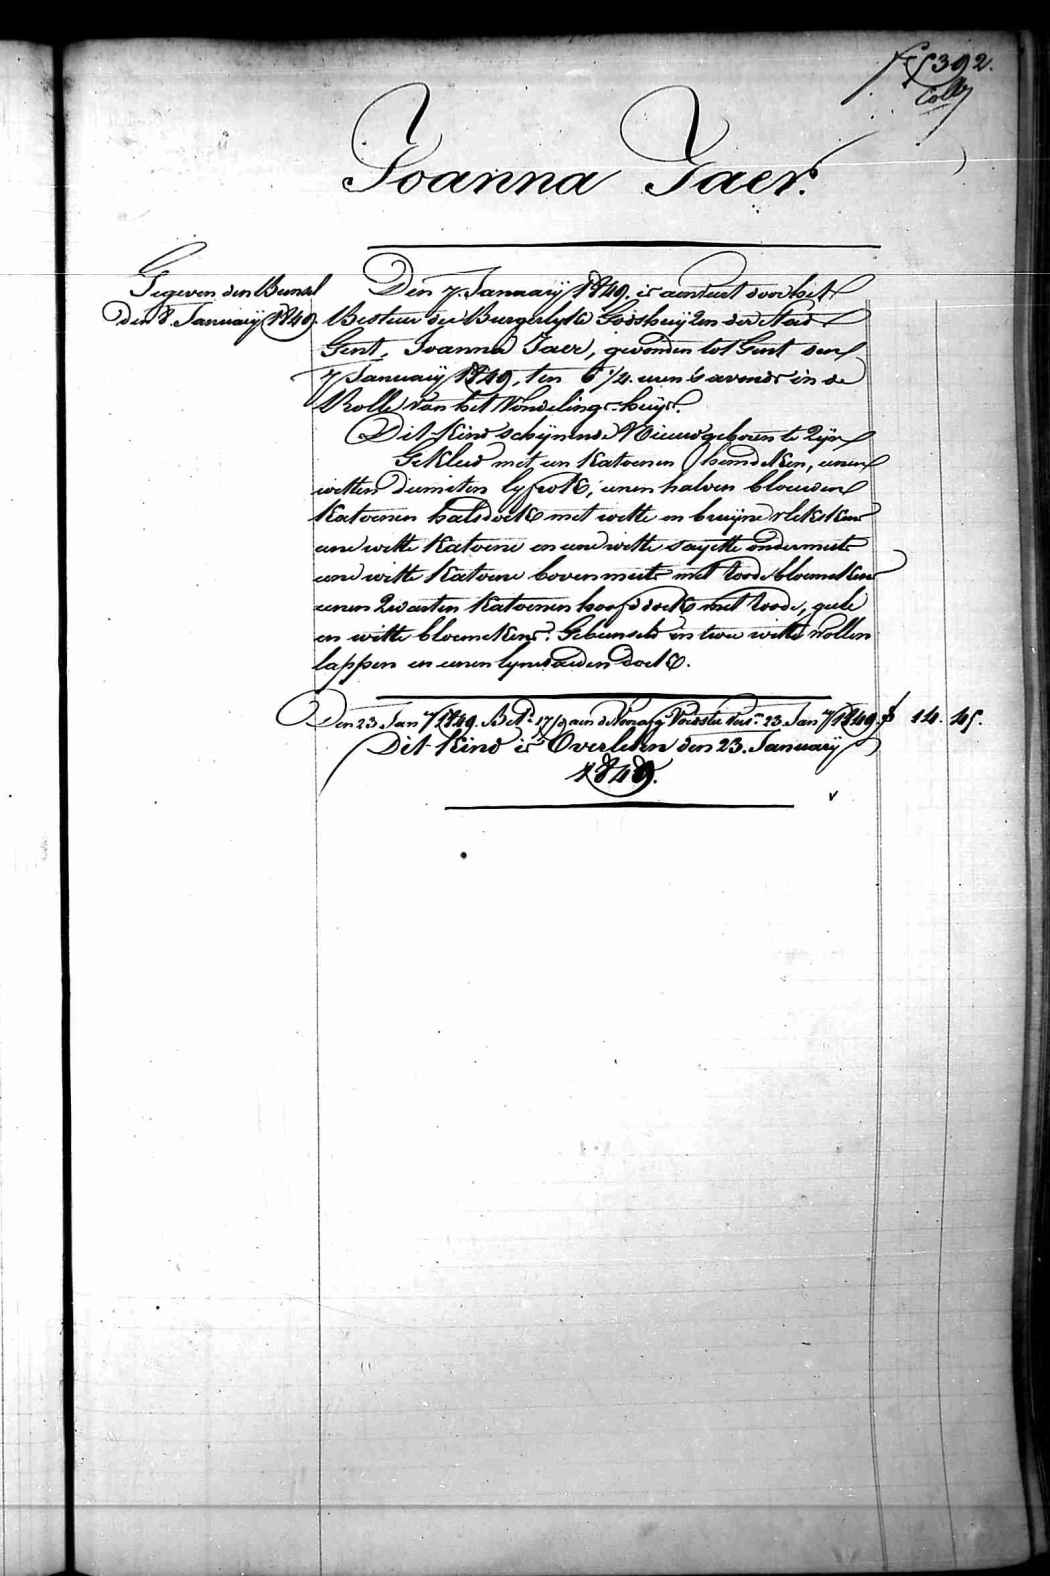 392.
Joanna Jaer.
Gegeven den Bunsel
den 8. Januarij 1849.
Den 7. Januarij 1849. is aenveert door het
Bestuer der Burgerlyke Godshuijzen der Stad
Gent, Joanna Jaer, gevonden tot Gent den
7 Januarij 1849, ten 6 1/4. uren 's avonds in de
Rolle van het Vondelings-huijs.
Dit Kind schijnende Nieuwgeboren te Zijn
Gekleed met een Katoenen hemdeken, eenen
witten dimiten lyfrok, eenen halven blauwen
Katoenen halsdoek met witte en bruijne vlekskens
eene witte Katoene en eene witte sayette ondermuts
eene witte Katoene bovenmuts met roode bloemekens
eenen Zwarten Katoenen hoofddoek met roode, geele
en witte bloemekens. Gebunseld in twee witte wollen
lappen en eenen lynwaeden doek.
Den 23 Jan 1849. 17 aen de Voedster 23 Jan 1849. 14. 45.
Dit Kind is Overleden den 23. Januarij
1849.